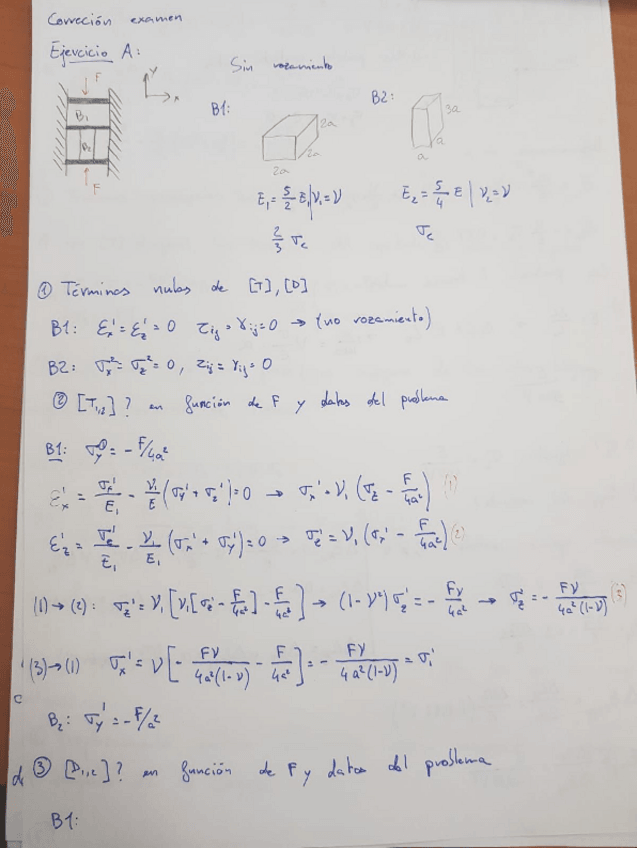 Correción examen
Ejercicio A:
Sin rozamiento
F
y
x
B₁
B₂
F
B1:
2a
2a
2a
B2:
3a
a
a
E₁ = 5/2 E | ν₁ = ν
E₂ = 5/4 E | ν₂ = ν
2/3 σc
σc
① Términos nulos de [T], [D]
B1: εx' = εz' = 0 τij = γij = 0 → (no rozamiento)
B2: σx² = σz² = 0, τij = γij = 0
② [T₁,₂]? en función de F y datos del problema
B1: σy① = -F/4a²
εx' = σx'/E₁ - ν₁/E (σy' + σz') = 0 → σx' = ν₁ (σz' - F/4a²) (1)
εz' = σz'/E₁ - ν₁/E₁ (σx' + σy') = 0 → σz' = ν₁ (σx' - F/4a²) (2)
(1) → (2): σz' = ν₁ [ν₁ [σz' - F/4a²] - F/4a²] → (1-ν²) σz' = - Fν/4a² → σz' = - Fν/4a²(1-ν) (3)
(3) → (1) σx' = ν [- Fν/4a²(1-ν) - F/4a²] = - Fν/4a²(1-ν) = σ₁'
B₂: σy' = -F/a²
③ [D₁,₂]? en función de F y datos del problema
B1: